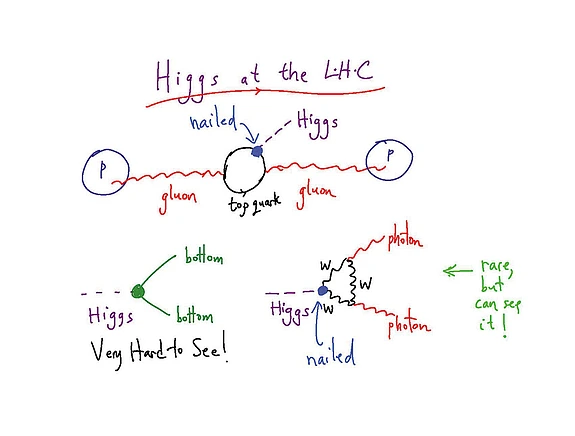 Higgs at the L·H·C
nailed
Higgs
P
P
gluon
top quark
gluon
bottom
Higgs
bottom
Very Hard to See!
photon
W
W
Higgs
W
photon
nailed
rare,
but
can see
it!